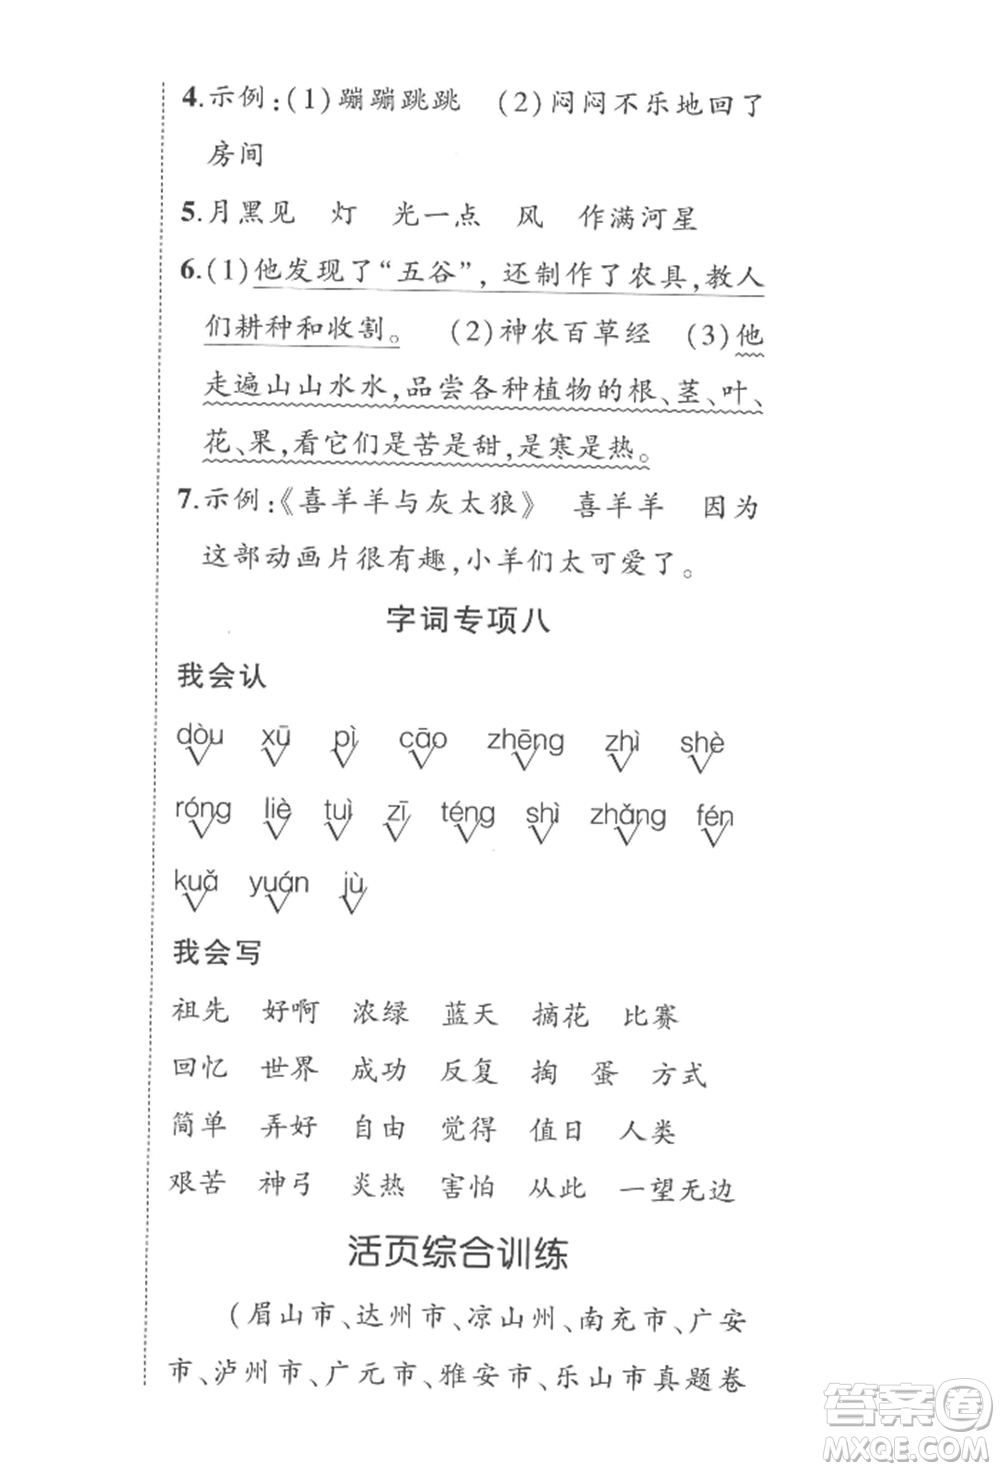 4.示例:(1)蹦蹦跳跳 (2)闷闷不乐地回了
房间
5.月黑见 灯 光一点 风 作满河星
6.(1)他发现了“五谷”，还制作了农具,教人
们耕种和收割。 (2)神农百草经 (3)他
走遍山山水水,品尝各种植物的根、茎、叶、
花、果,看它们是苦是甜,是寒是热。
7.示例:《喜羊羊与灰太狼》 喜羊羊 因为
这部动画片很有趣,小羊们太可爱了。
字词专项八
我会认
dòu xū pì cāo zhēng zhì shè
róng liè tuì zī téng shì zhǎng fén
kuǎ yuán jù
我会写
祖先 好啊 浓绿 蓝天 摘花 比赛
回忆 世界 成功 反复 掏 蛋 方式
简单 弄好 自由 觉得 值日 人类
艰苦 神弓 炎热 害怕 从此 一望无边
活页综合训练
(眉山市、达州市、凉山州、南充市、广安
市、泸州市、广元市、雅安市、乐山市真题卷
答案圈
MXQE.COM